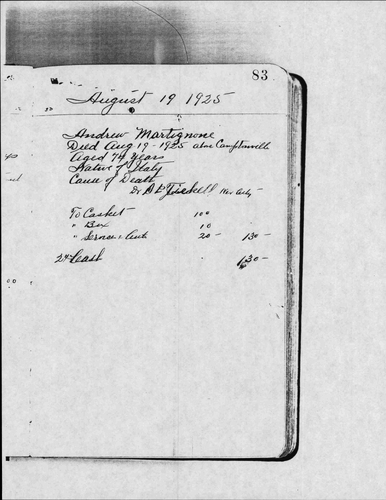 83
August 19 1925
Andrew Martignone
Died Aug 19 - 1925 above Camptonville
Aged 74 years
Native of Italy
Cause of Death
Dr
To Casket 100
" Box 10
" Service & Auto 20 - 130 -
Cash 130 -